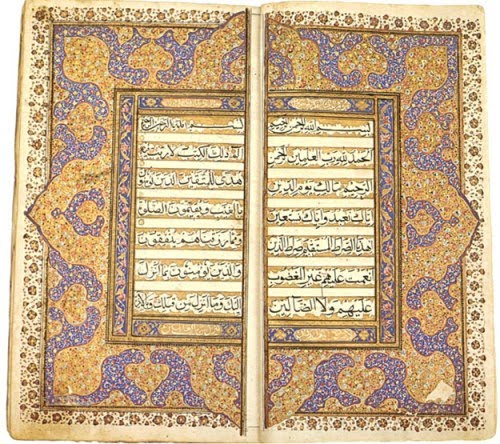 بسم الله الرحمن الرحيم
الحمد لله رب العالمين الرحمن
الرحيم مالك يوم الدين
اياك نعبد واياك نستعين
اهدنا الصراط المستقيم صراط الذين
انعمت عليهم غير المغضوب
عليهم ولا الضالين
بسم الله الرحمن الرحيم
الم ذلك الكتب لا ريب فيه
هدى للمتقين الذين يؤمنون
بالغيب ويقيمون الصلوة
ومما رزقناهم ينفقون
والذين يؤمنون بما انزل
اليك وما انزل من قبلك وبالاخرة